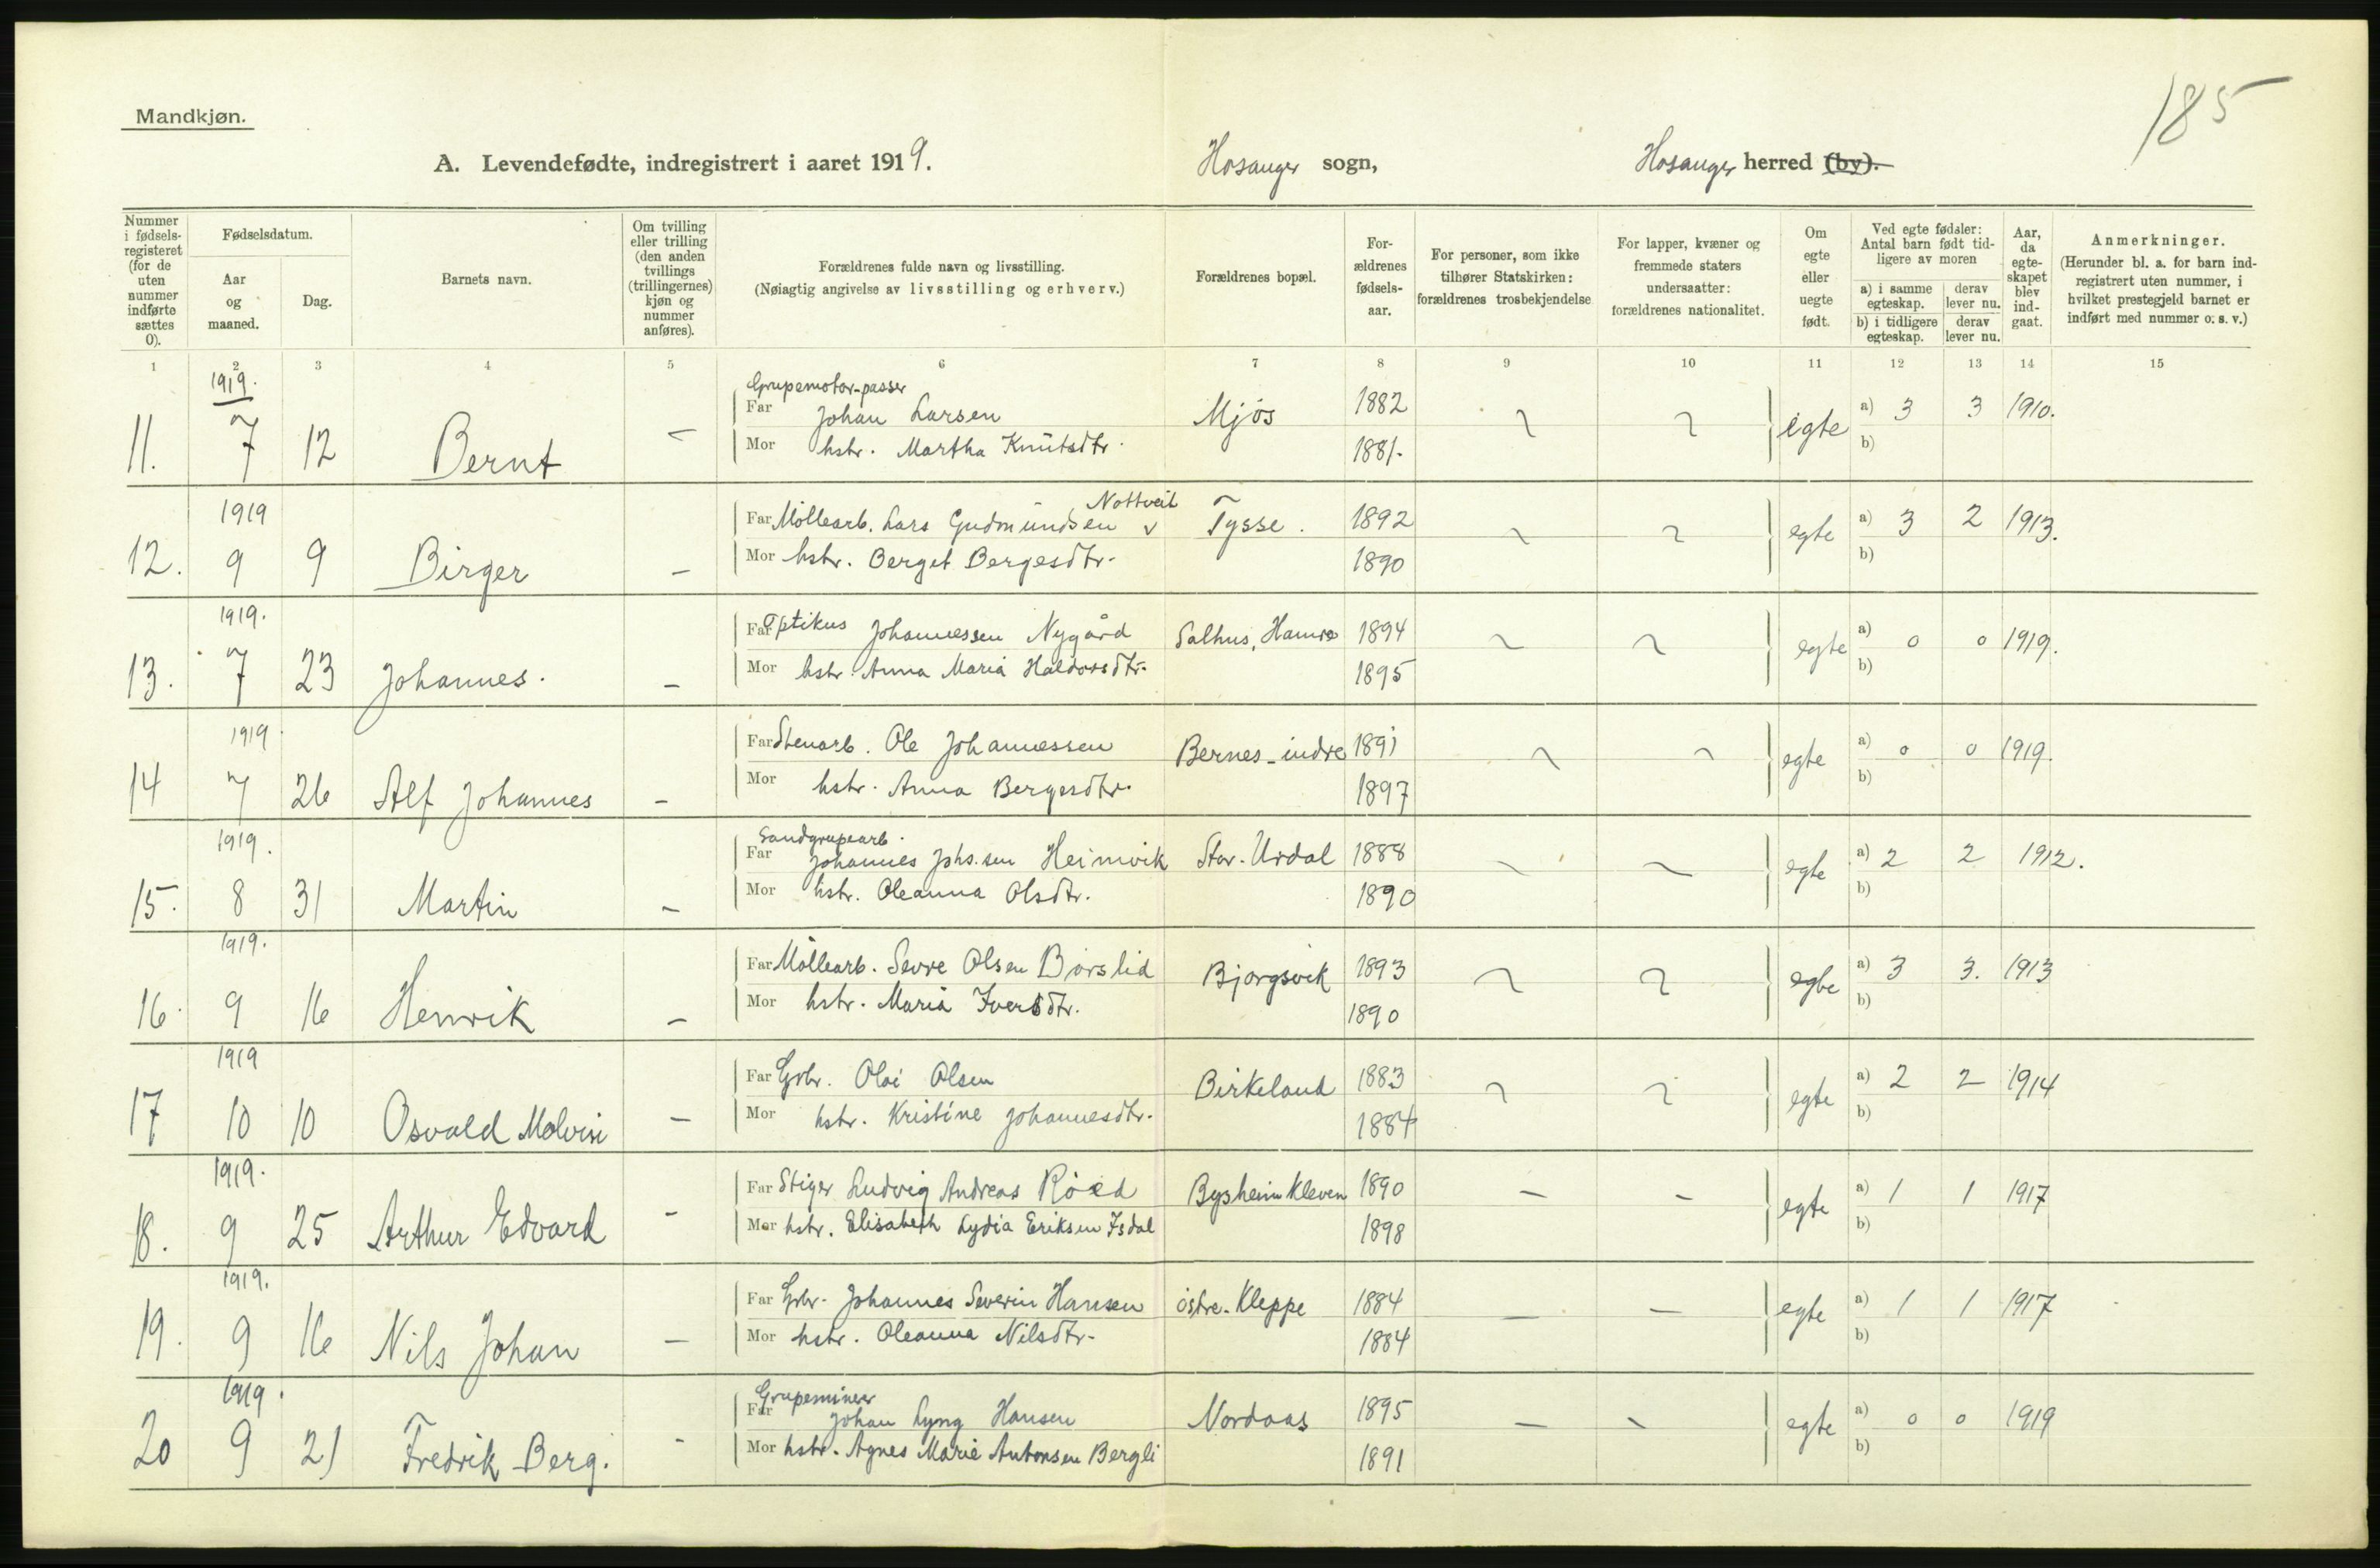 185
Mandkjøn.
A. Levendefødte, indregistrert i aaret 1919. Hosanger sogn, Hosanger herred (by).
Nummer i fødselsregisteret (for de uten nummer indførte sættes 0).
Fødselsdatum.
Aar og maaned.
Dag.
Barnets navn.
Om tvilling eller trilling (den anden tvillings (trillingernes) kjøn og nummer anføres).
Forældrenes fulde navn og livsstilling.
(Nøiagtig angivelse av livsstilling og erhverv.)
Forældrenes bopæl.
Forældrenes fødselsaar.
For personer, som ikke tilhører Statskirken: forældrenes trosbekjendelse
For lapper, kvæner og fremmede staters undersaatter: forældrenes nationalitet.
Om egte eller uegte født.
Ved egte fødsler: Antal barn født tidligere av moren
a) i samme egteskap. derav lever nu.
b) i tidligere egteskap. derav lever nu.
Aar, da egteskapet blev indgaat.
Anmerkninger.
(Herunder bl. a. for barn indregistrert uten nummer, i hvilket prestegjeld barnet er indført med nummer o. s. v.)
1 2 3 4 5 6 7 8 9 10 11 12 13 14 15
1919. Grupemotor-passer
11. 7 12 Bernt - Far Johan Larsen Mjøs 1882 egte a) 3 3 1910.
Mor hstr. Martha Knutsdtr. 1881. b)
1919 Nottveit
12. 9 9 Birger - Far Møllearb. Lars Gudmundsen v Tysse. 1892 egte a) 3 2 1913.
Mor hstr. Berget Bergesdtr. 1890 b)
1919.
13. 7 23 Johannes. - Far Optikus Johannessen Nygård Salhus, Hamre 1894 egte a) 0 0 1919.
Mor hstr. Anna Maria Haldorsdtr. 1895 b)
1919
14 7 26 Alf Johannes - Far Stenarb. Ole Johannessen Bernes-indre 1891 egte a) 0 0 1919.
Mor hstr. Anna Bergesdtr. 1897 b)
1919. Sandgrupearb.
15. 8 31 Martin - Far Johannes Johs.sen Heimvik Stor-Urdal 1888 egte a) 2 2 1912.
Mor hstr. Oleanna Olsdtr. 1890 b)
1919.
16. 9 16 Henrik - Far Møllearb. Sevre Olsen Børslid Bjørgsvik 1893 egte a) 3 3. 1913
Mor hstr. Maria Iversdtr. 1890 b)
1919
17 10 10 Osvald Molvin - Far Grbr. Olai Olsen Birkeland 1883 egte a) 2 2 1914
Mor hstr. Kristine Johannesdtr. 1884 b)
1919.
18. 9 25 Arthur Edvard - Far Stiger Ludvig Andreas Röed Bysheim Kleven 1890 - - egte a) 1 1 1917
Mor hstr. Elisabeth Lydia Eriksen Isdal 1898 b)
1919.
19. 9 16 Nils Johan - Far Grbr. Johannes Severin Hansen østre-Kleppe 1884 - - egte a) 1 1 1917
Mor hstr. Oleanna Nilsdtr. 1884 b)
1919. Grupeminer
20 9 21 Fredrik Berg. - Far Johan Lyng Hansen Nordaas 1895 - - egte a) 0 0 1919
Mor hstr. Agnes Marie Antonsen Bergli 1891 b)